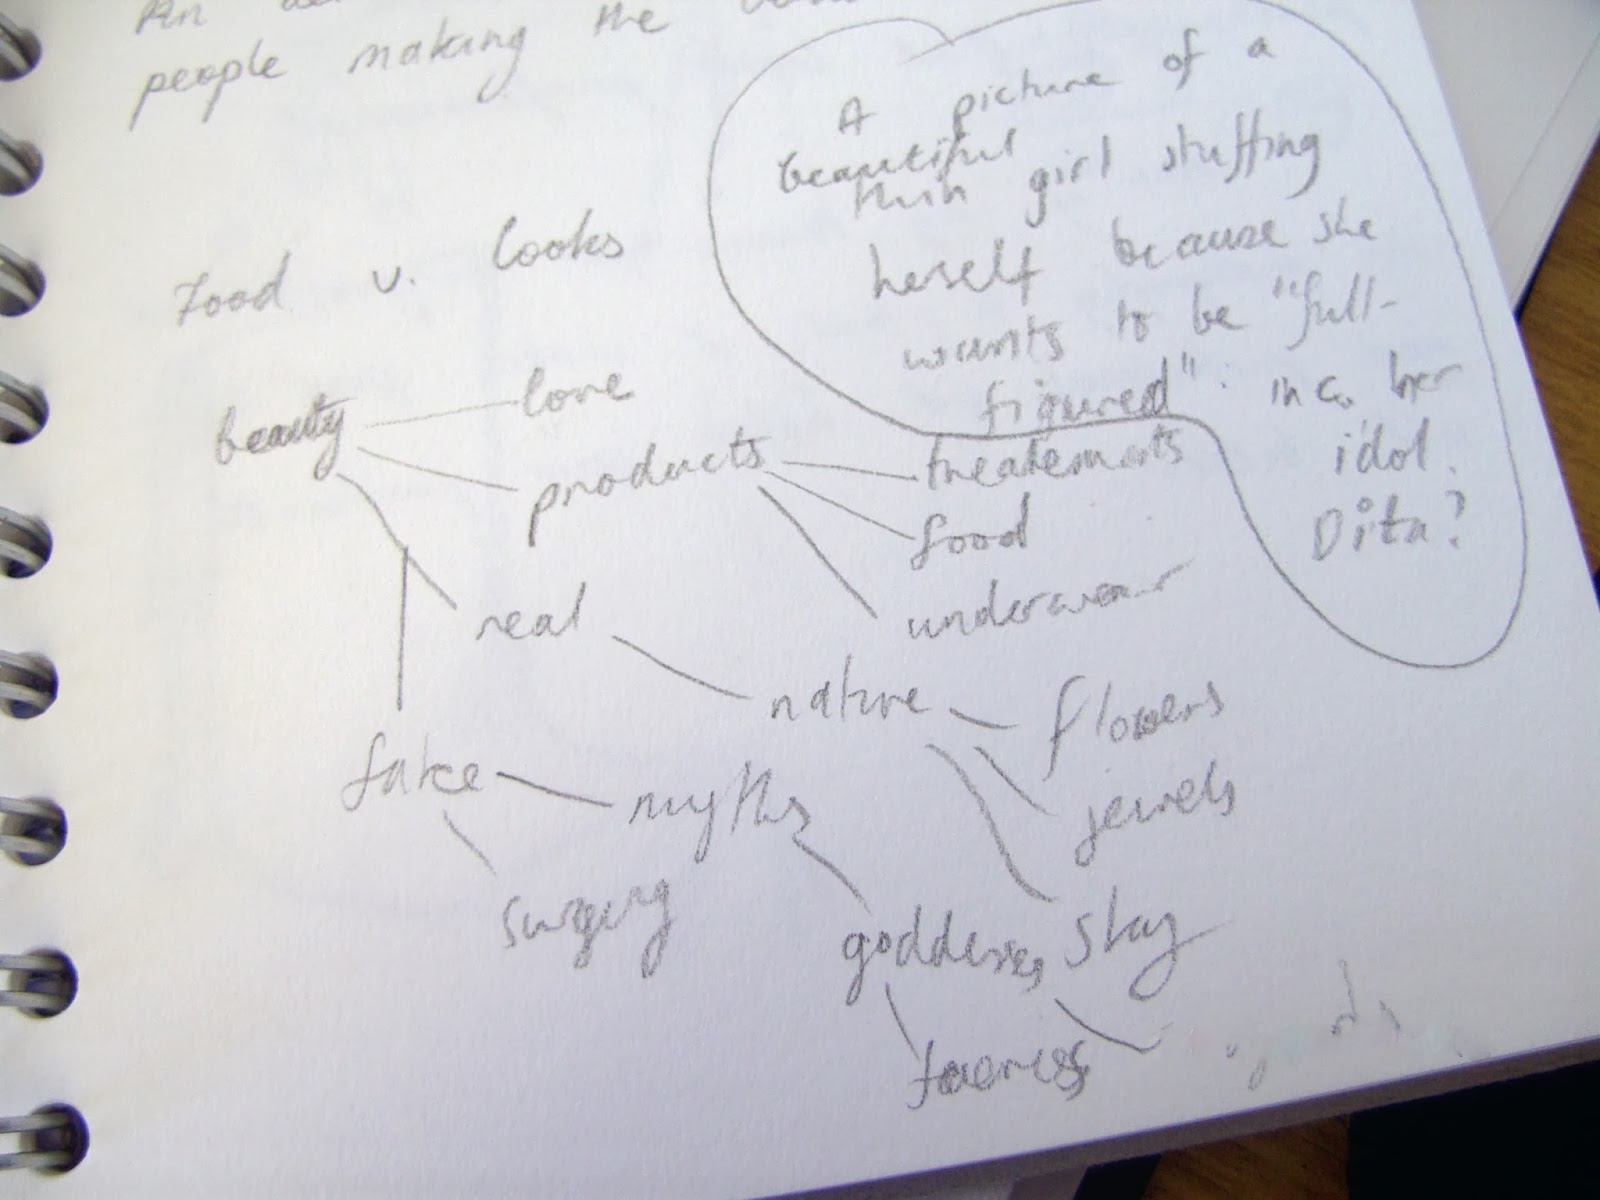 An
people making the
Food v. looks
A picture of a
beautiful
thin girl stuffing
herself because she
wants to be "full-
figured". in c. her
idol.
Dita?
beauty
love
products
treatements
food
underwear
real
nature
flowers
jewels
stay
fake
myths
surgery
goddesses
faeries